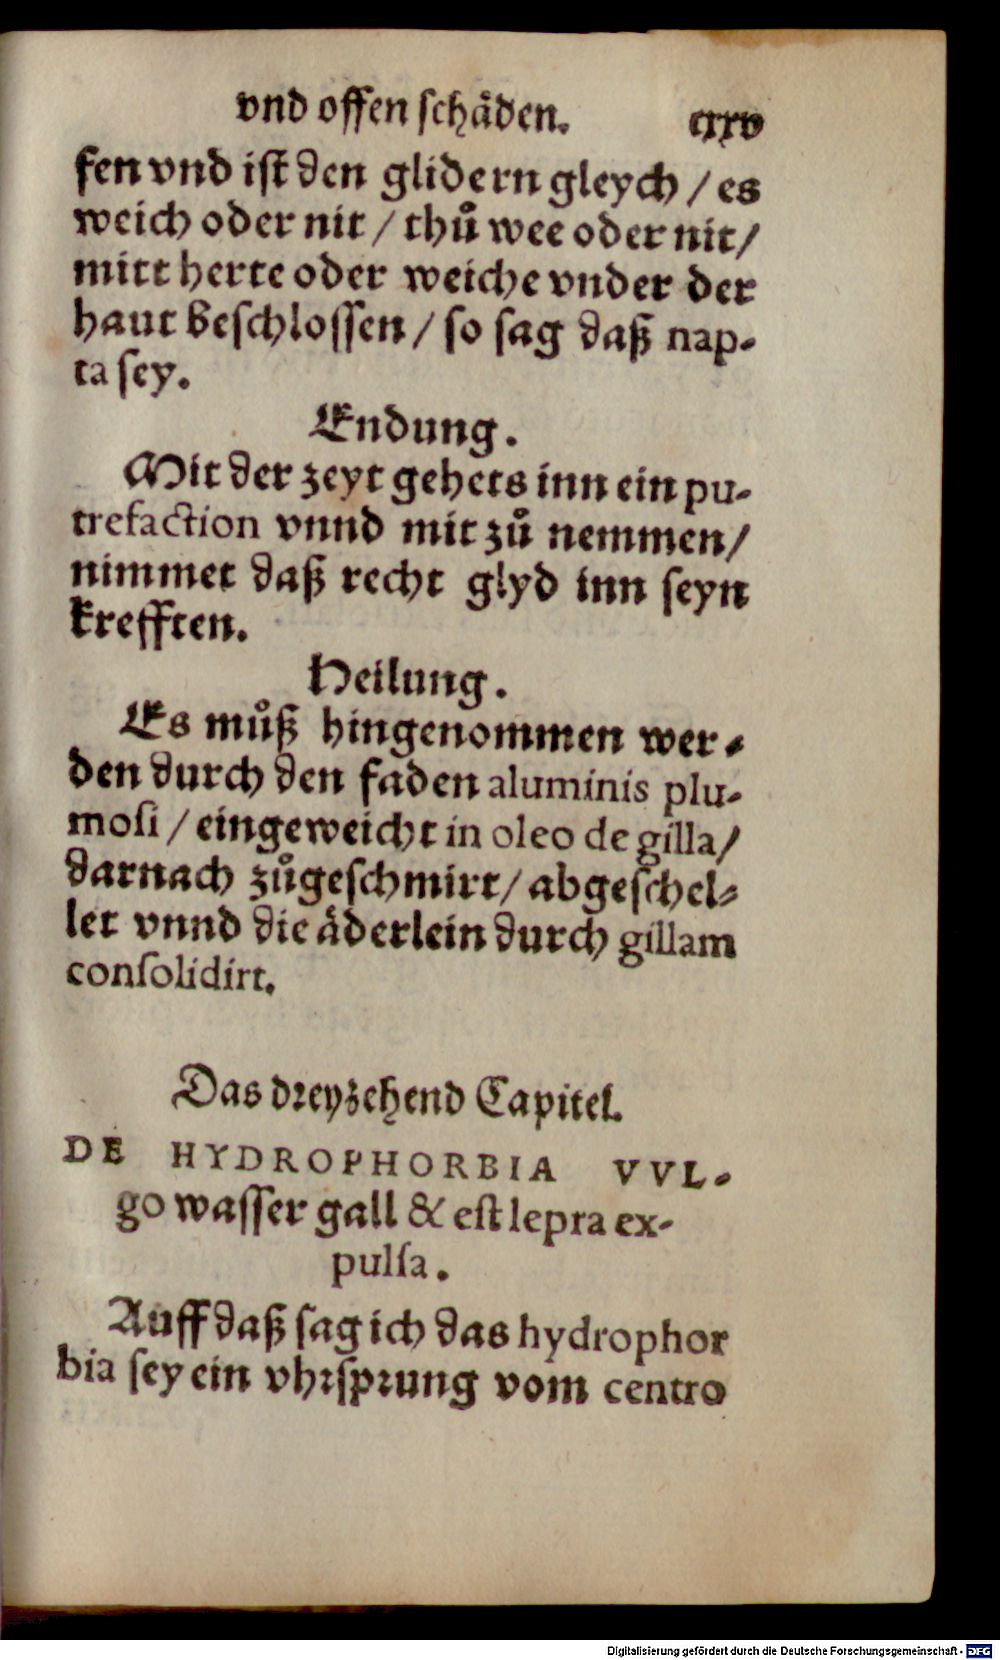 vnd offen schäden. cxxv
fen vnd ist den glidern gleych / es
weich oder nit / thů wee oder nit /
mitt herte oder weiche vnder der
haut beschlossen / so sag daß nap-
ta sey.
Endung.
Mit der zeyt gehets inn ein pu-
trefaction vnnd mit zů nemmen /
nimmet daß recht glyd inn seyn
krefften.
Heilung.
Es můß hingenommen wer-
den durch den faden aluminis plu-
mosi / eingeweicht in oleo de gilla /
darnach zůgeschmirt / abgeschel-
let vnnd die äderlein durch gillam
consolidirt.
Das dreyzehend Capitel.
DE HYDROPHORBIA VVL-
go wasser gall & est lepra ex-
pulsa.
Auff daß sag ich das hydrophor
bia sey ein vhrsprung vom centro
Digitalisierung gefördert durch die Deutsche Forschungsgemeinschaft - DFG